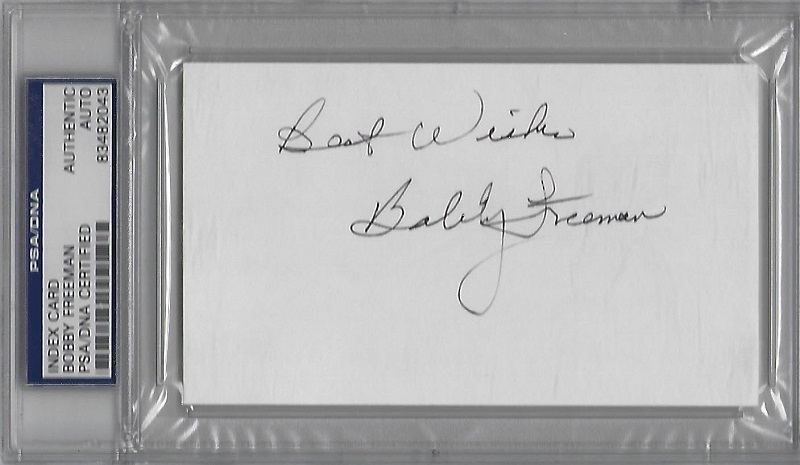 PSA/DNA
INDEX CARD
BOBBY FREEMAN
PSA/DNA CERTIFIED
AUTHENTIC
AUTO
83482043
Best Wishes
Bobby Freeman